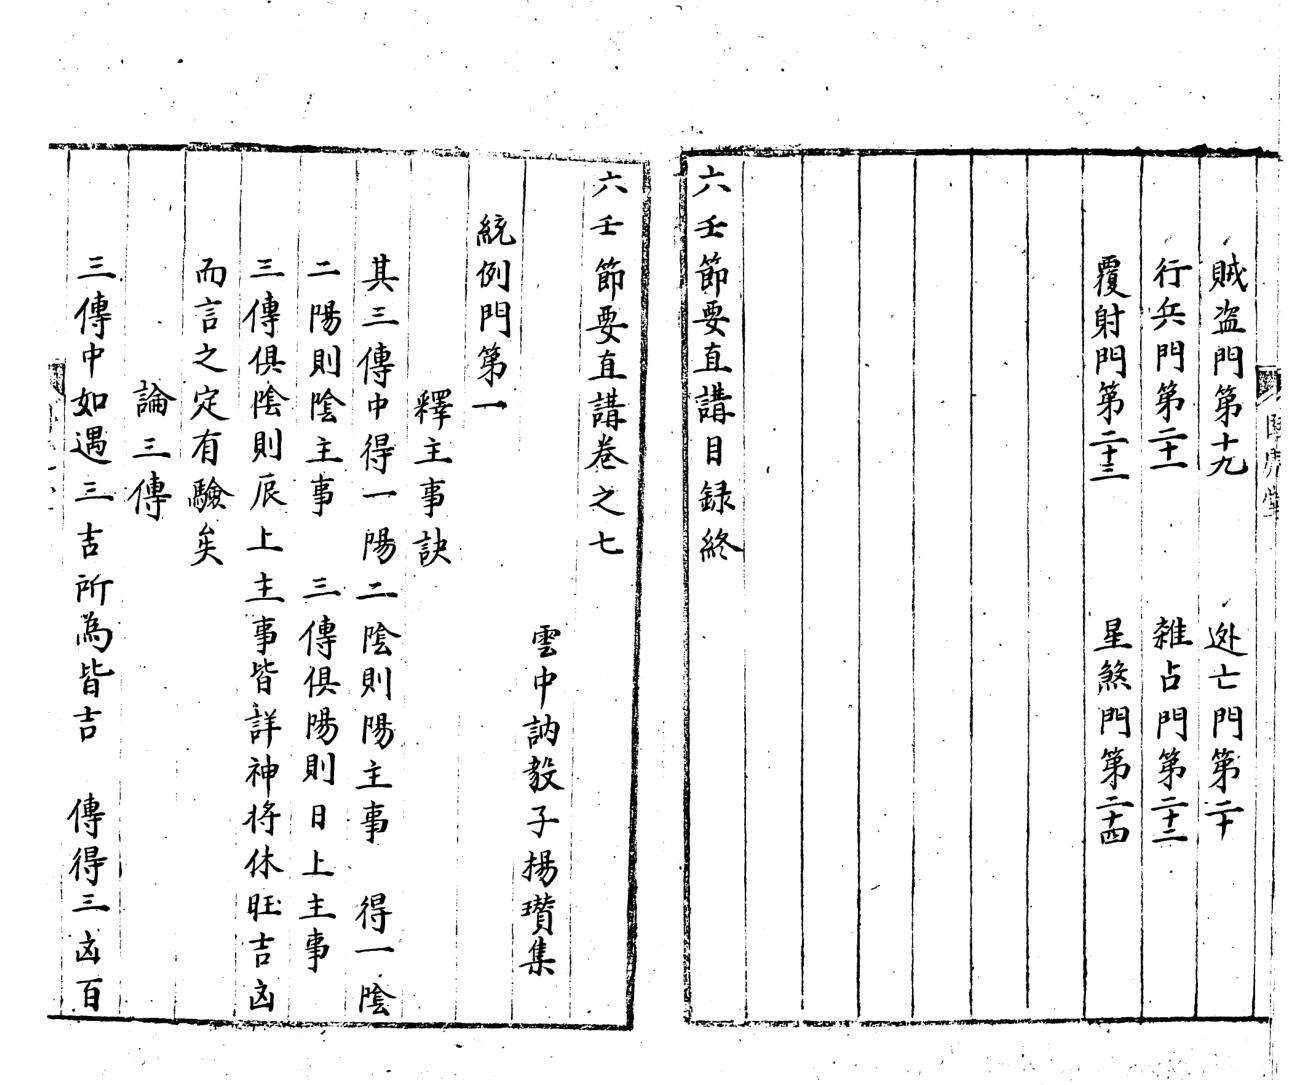 賊盗門第十九　迯亡門第二十
行兵門第二十一　雜占門第二十二
覆射門第二十三　星煞門第二十四
六壬節要直講目録終
六壬節要直講卷之七
雲中訥毅子楊瓚集
統例門第一
釋主事訣
其三傳中得一陽二陰則陽主事　得一陰
二陽則陰主事　三傳俱陽則日上主事
三傳俱陰則辰上主事皆詳神将休旺吉凶
而言之定有驗矣
論三傳
三傳中如遇三吉所為皆吉　傳得三凶百